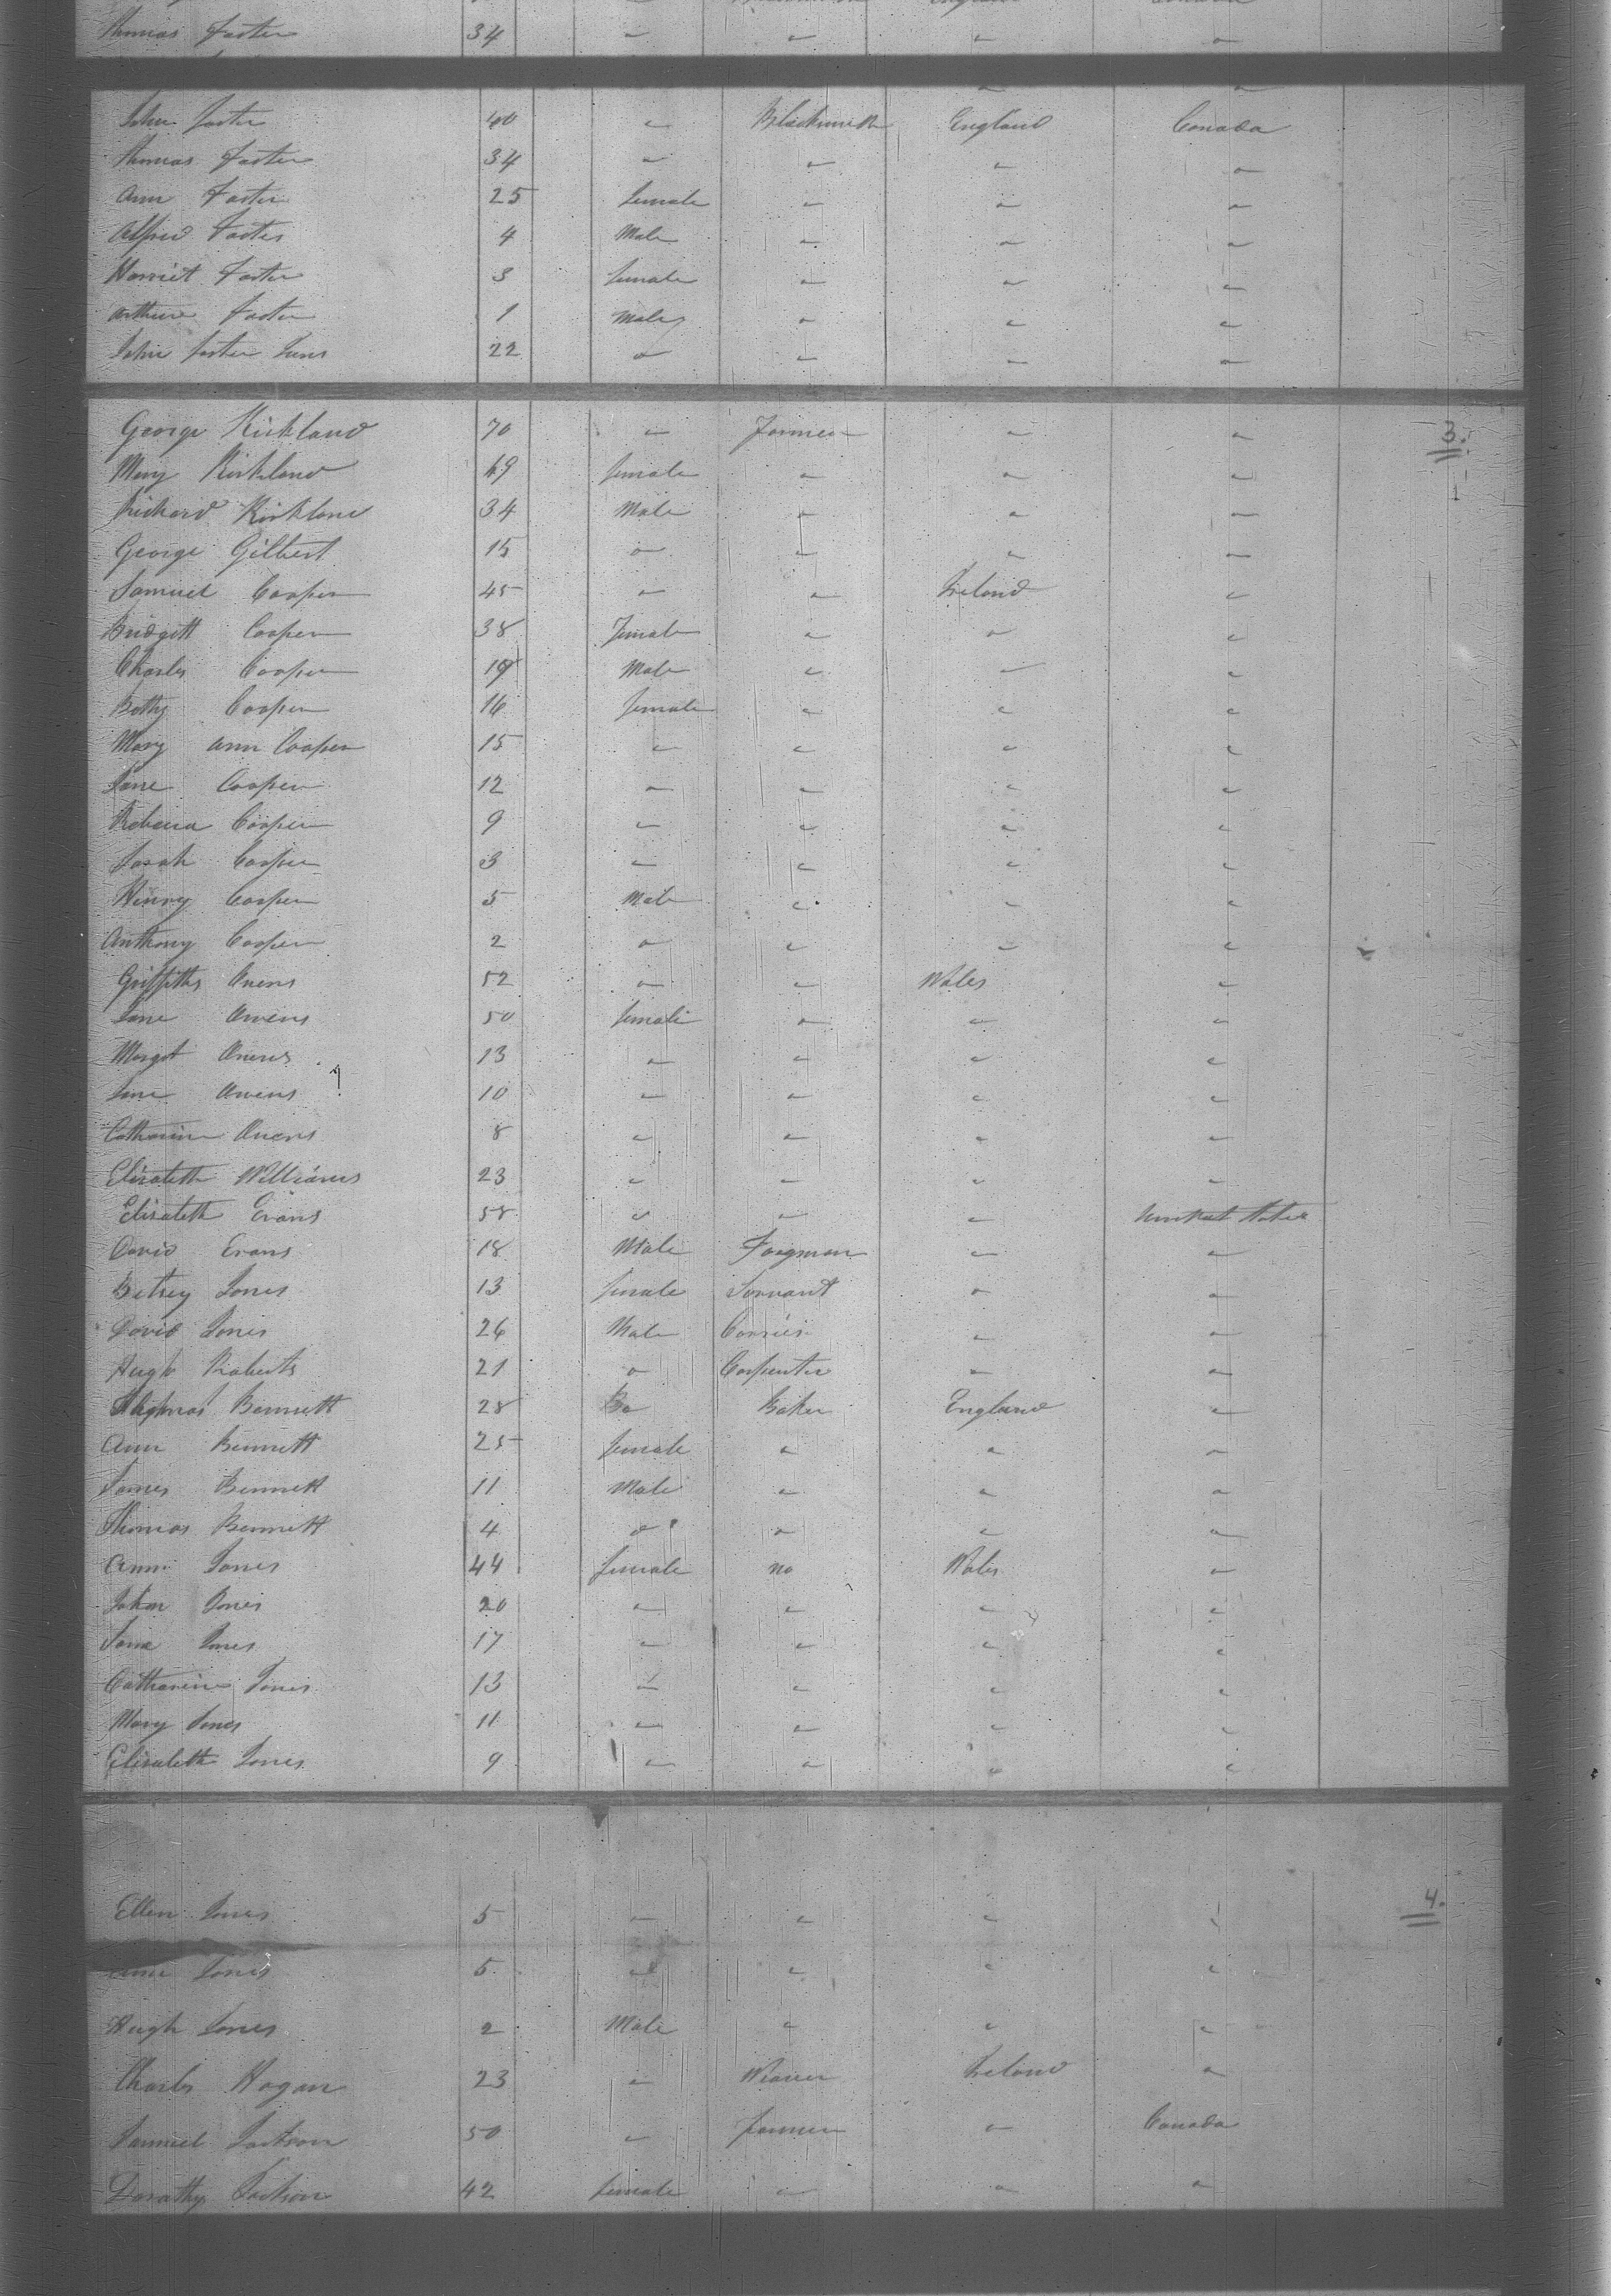 Thomas Foster 34 " " " "
John Foster 40 " Blacksmith England Canada
Thomas Foster 34 " " " "
Ann Foster 25 female " " "
Alfred Foster 4 Male " " "
Harriet Foster 3 female " " "
Arthur Foster 1 Male " " "
John Foster Junr 22 " " " "
George Kirkland 70 " Farmer " " 3.
Mary Kirkland 49 female " " "
Richard Kirkland 34 Male " " "
George Gilbert 15 " " " "
Samuel Cooper 45 " " Ireland "
Bridgett Cooper 38 Female " " "
Charles Cooper 19 Male " " "
Betty Cooper 16 female " " "
Mary Ann Cooper 15 " " " "
Jane Cooper 12 " " " "
Rebecca Cooper 9 " " " "
Sarah Cooper 3 " " " "
Henry Cooper 5 Male " " "
Anthony Cooper 2 " " " "
Griffiths Owens 52 " " Wales "
Jane Owens 50 female " " "
Margt Owens 13 " " " "
Jane Owens 10 " " " "
Catharine Owens 8 " " " "
Elisabeth Williams 23 " " " "
Elisabeth Evans 58 " " "
David Evans 18 Male Forgman " "
Betsey Jones 13 female Servant " "
David Jones 26 Male " "
Hugh Roberts 21 " Carpenter " "
Thomas Bennett 28 Do Baker England "
Ann Bennett 25 female " " "
James Bennett 11 Male " " "
Thomas Bennett 4 " " " "
Ann Jones 44 female no Wales "
John Jones 20 " " " "
Jane Jones 17 " " " "
Catharine Jones 13 " " " "
Mary Jones 11 " " " "
Elisabeth Jones 9 " " " "
Ellen Jones 5 " " " " 4.
Ann Jones 5 " " " "
Hugh Jones 2 Male " " "
Charles Hogan 23 " Weaver Ireland "
Samuel Jackson 50 " farmer " Canada
Dorathy Jackson 42 female " " "